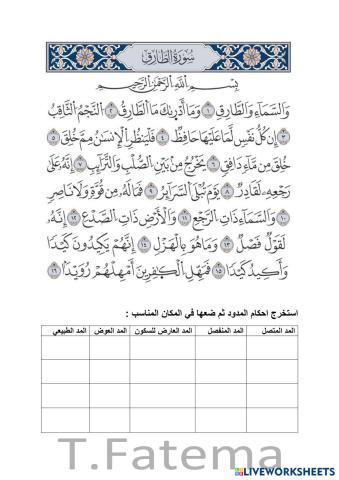 سُورَةُ الطَّارِقِ
بِسْمِ اللَّهِ الرَّحْمَٰنِ الرَّحِيمِ
وَالسَّمَاءِ وَالطَّارِقِ ١ وَمَا أَدْرَىٰكَ مَا الطَّارِقُ ٢ النَّجْمُ الثَّاقِبُ
٣ إِن كُلُّ نَفْسٍ لَّمَّا عَلَيْهَا حَافِظٌ ٤ فَلْيَنظُرِ الْإِنسَٰنُ مِمَّ خُلِقَ ٥
خُلِقَ مِن مَّاءٍ دَافِقٍ ٦ يَخْرُجُ مِنۢ بَيْنِ الصُّلْبِ وَالتَّرَائِبِ ٧ إِنَّهُ عَلَىٰ
رَجْعِهِ لَقَادِرٌ ٨ يَوْمَ تُبْلَى السَّرَائِرُ ٩ فَمَا لَهُ مِن قُوَّةٍ وَلَا نَاصِرٍ
١٠ وَالسَّمَاءِ ذَاتِ الرَّجْعِ ١١ وَالْأَرْضِ ذَاتِ الصَّدْعِ ١٢ إِنَّهُ
لَقَوْلٌ فَصْلٌ ١٣ وَمَا هُوَ بِالْهَزْلِ ١٤ إِنَّهُمْ يَكِيدُونَ كَيْدًا
وَأَكِيدُ كَيْدًا ١٥ فَمَهِّلِ الْكَٰفِرِينَ أَمْهِلْهُمْ رُوَيْدًا ١٦
استخرج احكام المدود ثم ضعها في المكان المناسب :
المد المتصل المد المنفصل المد العارض للسكون المد العوض المد الطبيعي
T.Fatema
LIVEWORKSHEETS